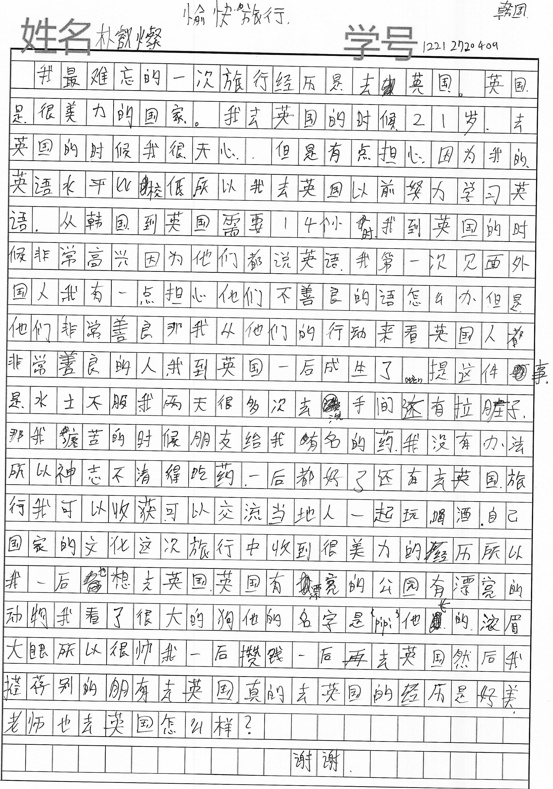 愉快的旅行 韩国
姓名 学号 1221 2720409
我最难忘的一次旅行经历是去英国。英国
是很美力的国家。我去英国的时候21岁.去
英国的时候我很天心.但是有点担心.因为我的
英语水平比较低所以我去英国以前努力学习英
语.从韩国到英国需要14个小时.我到英国的时
候非常高兴因为他们都说英语.我第一次见面外
国人我有一点担心他们不善良的话怎么办但是
他们非常善良那我从他们的行动来看英国人都
非常善良的人我到英国一后成生了……提这件事
是水土不服我两天很多次去洗手间还有拉肚子.
那我痛苦的时候朋友给我有名的药.我没有办法
所以神志不清得吃药.一后都好了还有去英国旅
行我可以收获可以交流当地人一起玩喝酒.自己
国家的文化这次旅行中收到很美力的经历所以
我一后也想去英国英国有漂亮的公园有漂亮的
动物我看了很大的狗他的名字是"pipi"他长的浓眉
大眼所以很帅我一后攒钱一后再去英国然后我
推荐别的朋有去英国真的去英国的经历是好美.
老师也去英国怎么样?
谢谢.